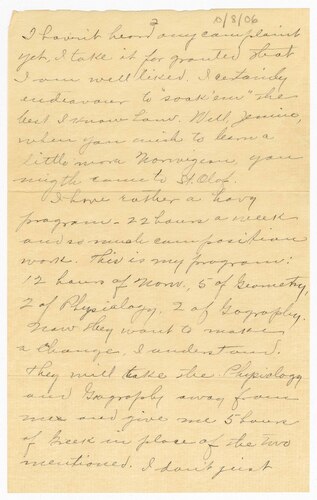 2
10/8/06
I havn't heard any complaint
yet, I take it for granted that
I am well liked. I certainly
endeavour to "soak 'em" the
best I know how. Well, Jennie,
when you wish to learn a
little more Norwegian, you
mygth come to St. Olaf.
I have rather a havy
program - 22 hours a week
and so much composition
work. This is my program:
12 hours of Norw., 6 of Geometry,
2 of Physiology, 2 of Gography.
Now they want to make
a change, I understand.
They will take the Physiology
and Gography away from
me and give me 5 hours
of Greek in place of the two
mentioned. I don't just